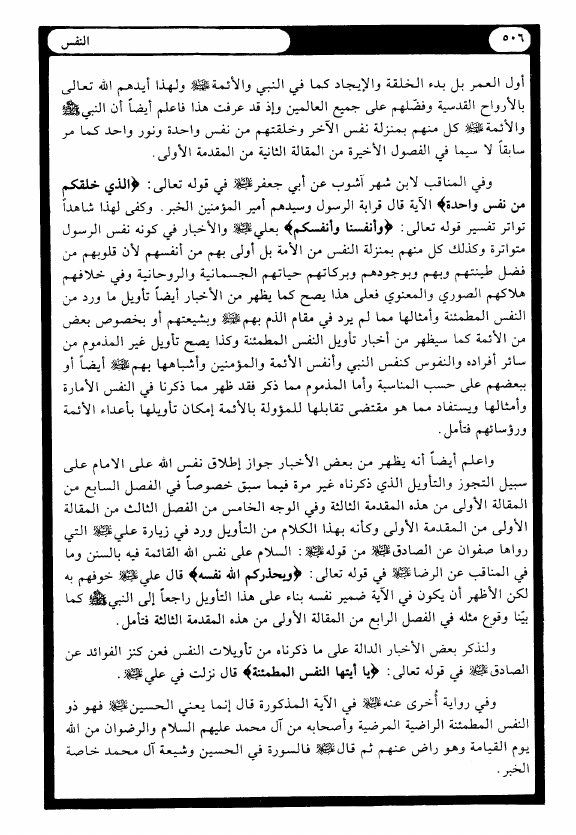 ٥٠٦
النفس
أول العمر بل بدء الخلقة والإيجاد كما في النبي والأئمة عليهم السلام ولهذا أيدهم الله تعالى
بالأرواح القدسية وفضّلهم على جميع العالمين وإذ قد عرفت هذا فاعلم أيضاً أن النبي ﷺ
والأئمة عليهم السلام كل منهم بمنزلة نفس الآخر وخلقتهم من نفس واحدة ونور واحد كما مر
سابقاً لا سيما في الفصول الأخيرة من المقالة الثانية من المقدمة الأولى.
وفي المناقب لابن شهر آشوب عن أبي جعفر عليه السلام في قوله تعالى: ﴿الذي خلقكم
من نفس واحدة﴾ الآية قال قرابة الرسول وسيدهم أمير المؤمنين الخبر. وكفى لهذا شاهداً
تواتر تفسير قوله تعالى: ﴿وأنفسنا وأنفسكم﴾ بعلي عليه السلام والأخبار في كونه نفس الرسول
متواترة وكذلك كل منهم بمنزلة النفس من الأمة بل أولى بهم من أنفسهم لأن قلوبهم من
فضل طينتهم وبهم وبوجودهم وبركاتهم حياتهم الجسمانية والروحانية وفي خلافهم
هلاكهم الصوري والمعنوي فعلى هذا يصح كما يظهر من الأخبار أيضاً تأويل ما ورد من
النفس المطمئنة وأمثالها مما لم يرد في مقام الذم بهم عليهم السلام وبشيعتهم أو بخصوص بعض
من الأئمة كما سيظهر من أخبار تأويل النفس المطمئنة وكذا يصح تأويل غير المذموم من
سائر أفراده والنفوس كنفس النبي وأنفس الأئمة والمؤمنين وأشباهها بهم عليهم السلام أيضاً أو
ببعضهم على حسب المناسبة وأما المذموم مما ذكر فقد ظهر مما ذكرنا في النفس الأمارة
وأمثالها ويستفاد مما هو مقتضى تقابلها للمؤولة بالأئمة إمكان تأويلها بأعداء الأئمة
ورؤسائهم فتأمل.
واعلم أيضاً أنه يظهر من بعض الأخبار جواز إطلاق نفس الله على الامام على
سبيل التجوز والتأويل الذي ذكرناه غير مرة فيما سبق خصوصاً في الفصل السابع من
المقالة الأولى من هذه المقدمة الثالثة وفي الوجه الخامس من الفصل الثالث من المقالة
الأولى من المقدمة الأولى وكأنه بهذا الكلام من التأويل ورد في زيارة علي عليه السلام التي
رواها صفوان عن الصادق عليه السلام من قوله عليه السلام: السلام على نفس الله القائمة فيه بالسنن وما
في المناقب عن الرضا عليه السلام في قوله تعالى: ﴿ويحذركم الله نفسه﴾ قال علي عليه السلام خوفهم به
لكن الأظهر أن يكون في الآية ضمير نفسه بناء على هذا التأويل راجعاً إلى النبي ﷺ كما
بيّنا وقوع مثله في الفصل الرابع من المقالة الأولى من هذه المقدمة الثالثة فتأمل.
ولنذكر بعض الأخبار الدالة على ما ذكرناه من تأويلات النفس فعن كنز الفوائد عن
الصادق عليه السلام في قوله تعالى: ﴿يا أيتها النفس المطمئنة﴾ قال نزلت في علي عليه السلام.
وفي رواية أُخرى عنه عليه السلام في الآية المذكورة قال إنما يعني الحسين عليه السلام فهو ذو
النفس المطمئنة الراضية المرضية وأصحابه من آل محمد عليهم السلام والرضوان من الله
يوم القيامة وهو راض عنهم ثم قال عليه السلام فالسورة في الحسين وشيعة آل محمد خاصة
الخبر.